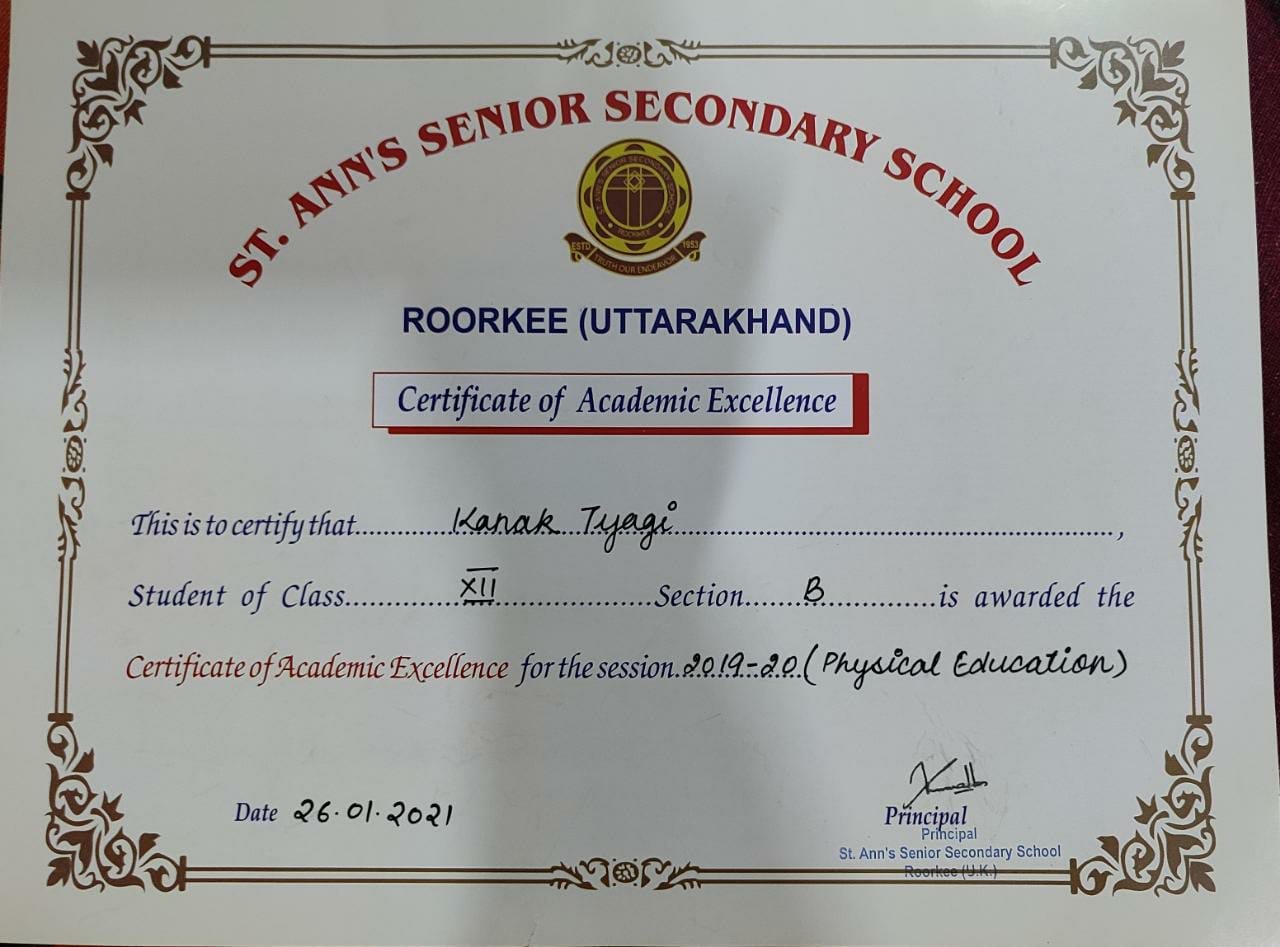 ST. ANN'S SENIOR SECONDARY SCHOOL
ST. ANN'S SENIOR SECONDARY SCHOOL
ROORKEE
ESTD 1953
TRUTH OUR ENDEAVOR
ROORKEE (UTTARAKHAND)
Certificate of Academic Excellence
This is to certify that..........Kanak Tyagi..........,
Student of Class..........XII..........Section..........B..........is awarded the
Certificate of Academic Excellence for the session..2019-20..(Physical Education)
Date 26.01.2021
Principal
Principal
St. Ann's Senior Secondary School
Roorkee (U.K.)